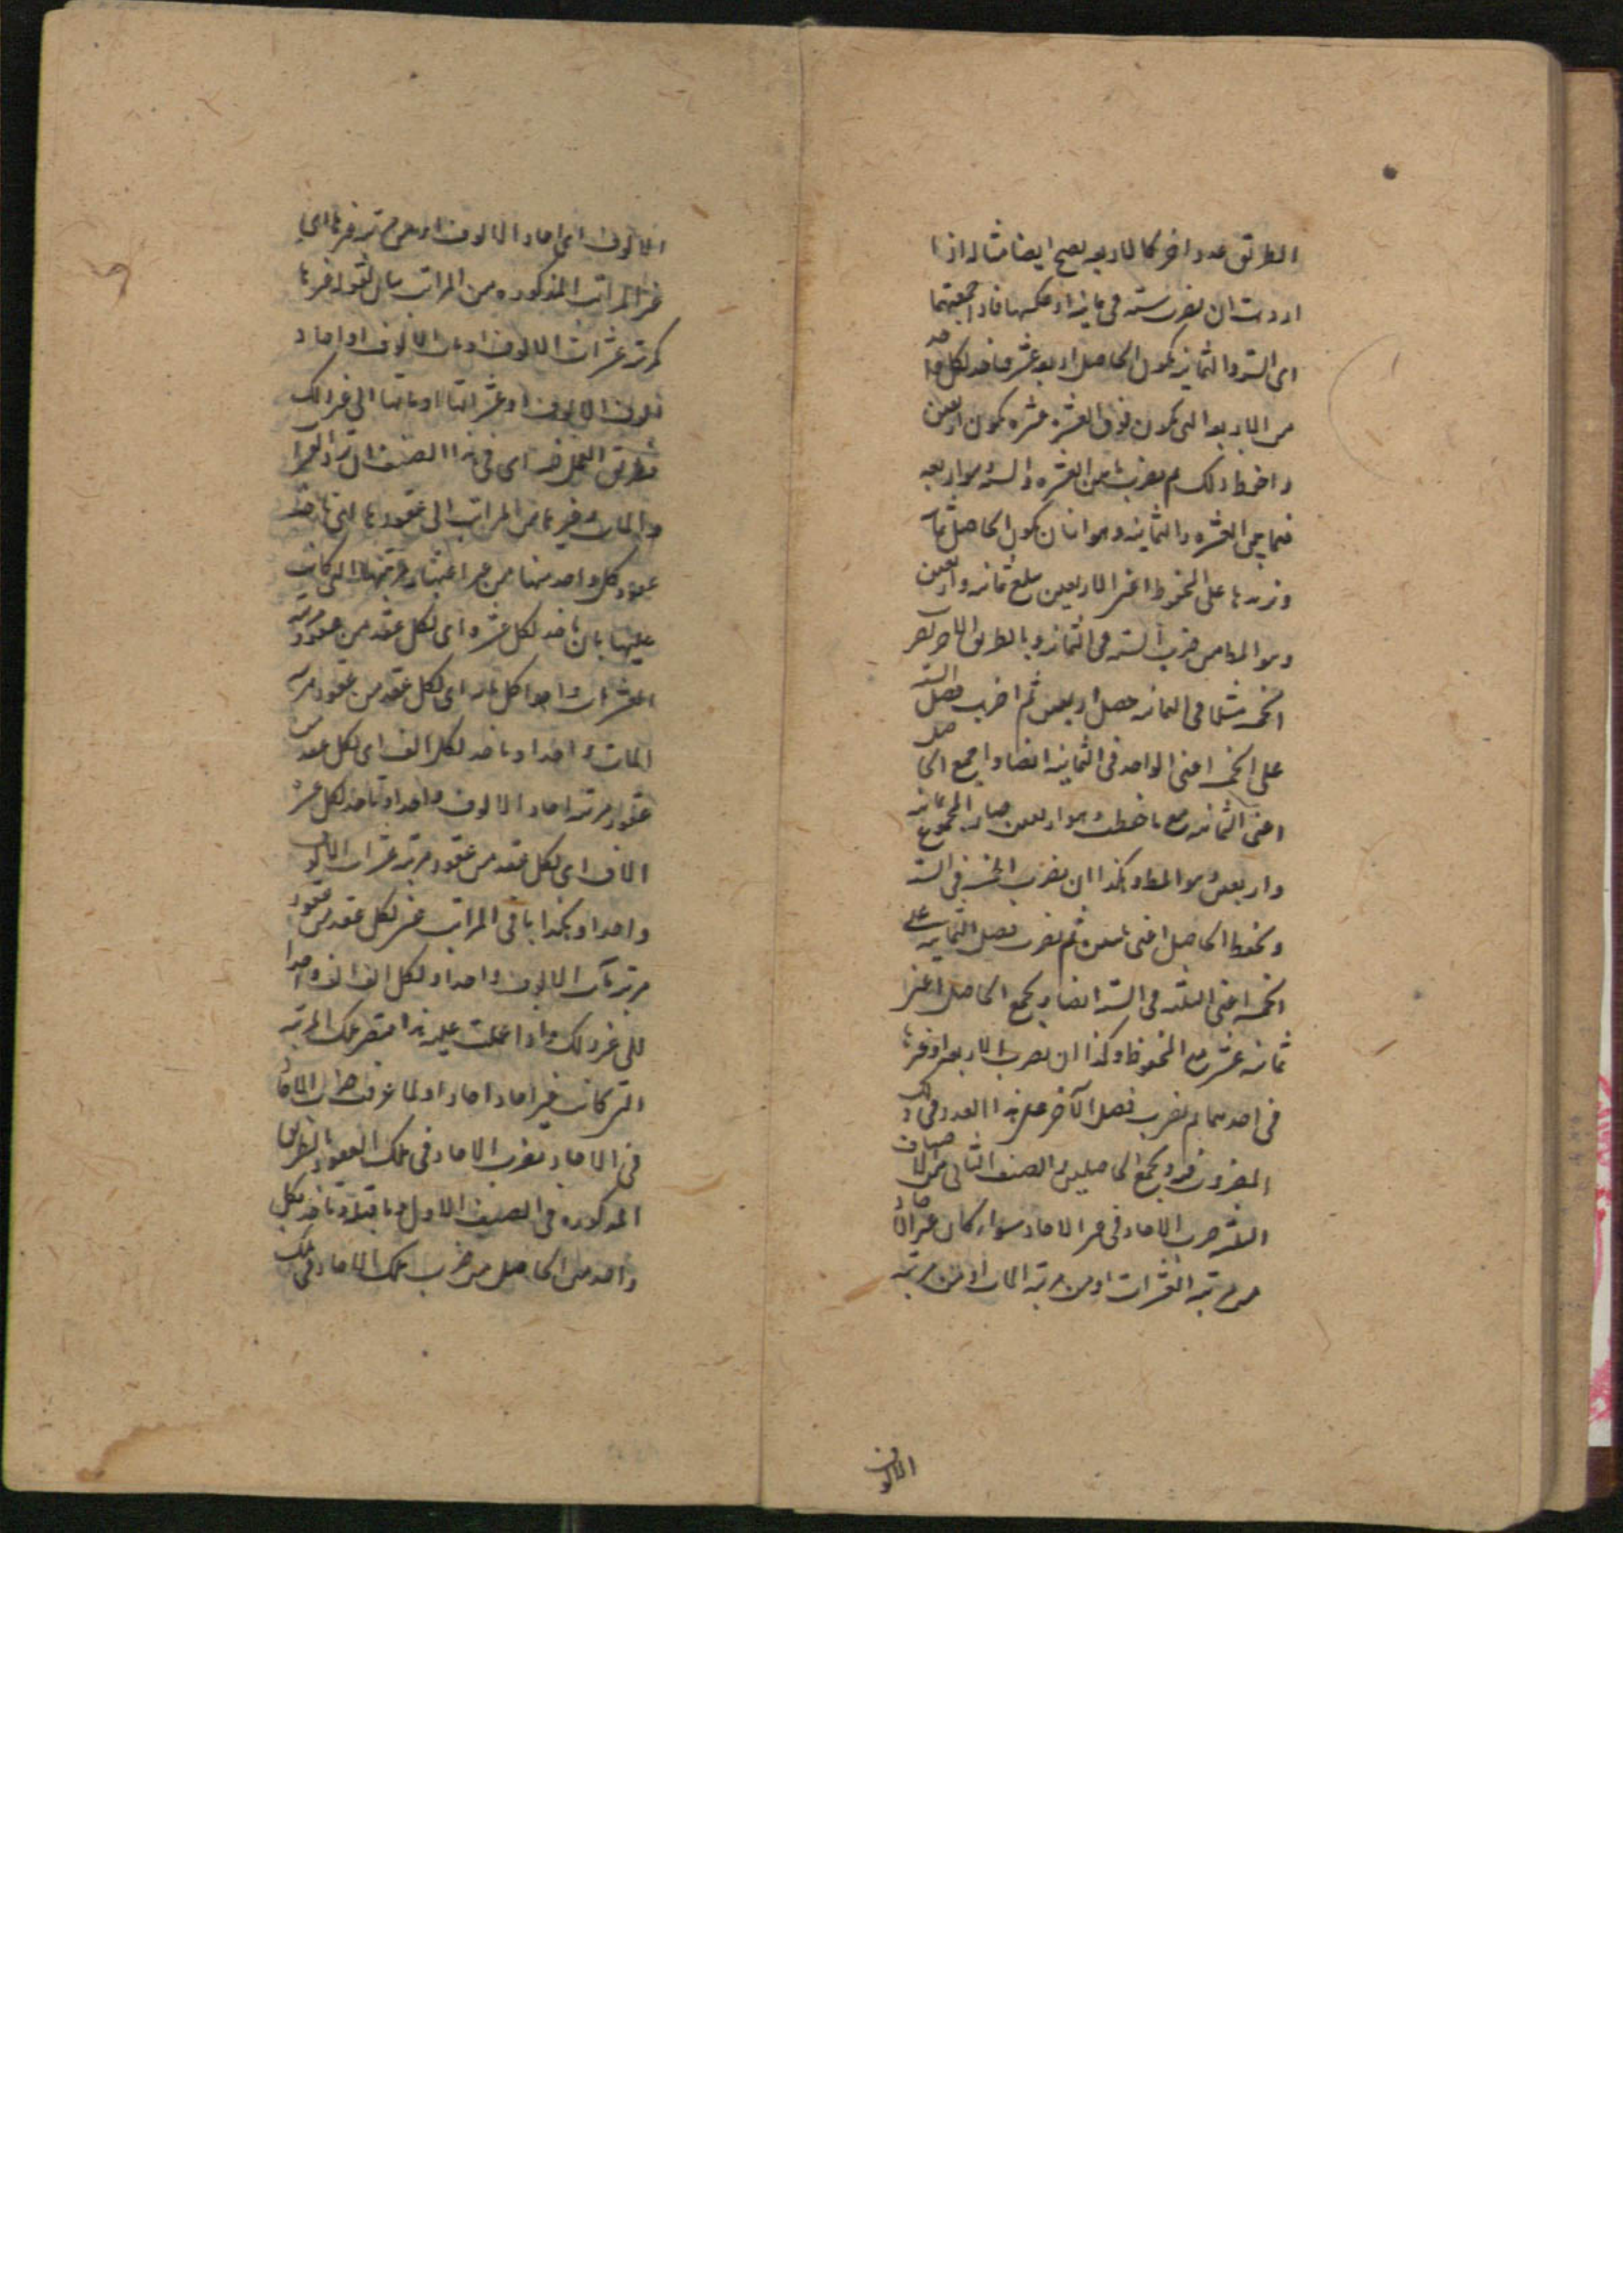 الطريق عدد اخر كالاربعه يصح ايضا مثاله اذا
اردت ان تضرب سته في ثمانيه او عكسها فاذا جمعتهما
اى السته والثمانيه يكون الحاصل اربعه عشر فناخذ لكل واحد
من الاربعه التى تكون فوق العشره عشره يكون اربعين
واحفظ ذلك ثم تضرب ما بين العشره والسته وهو اربعه
فيما بين العشره والثمانيه وهو اثنان يكون الحاصل ثمانيه
ونزيدها على المحفوظ اعنى الاربعين يبلغ ثمانيه واربعين
وهو المط من ضرب السته فى الثمانيه وبالطريق الاخر تضرب
الخمسه مثلا فى الثمانيه حصل اربعين ثم اضرب فضل السته
على الخمسه اعنى الواحد فى الثمانيه ايضا واجمع الحاصل
اعنى الثمانيه مع ما حفظت وهو اربعين صار المجموع ثمانيه
واربعين وهو المط وهكذا ان تضرب الخمسه فى السته
وتحفظ الحاصل اعنى ثلثين ثم تضرب فضل الثمانيه على
الخمسه اعنى الثلثه فى السته ايضا وتجمع الحاصل اعنى
ثمانيه عشر مع المحفوظ وكذا ان تضرب الاربعه او غيرها
فى احدهما ثم تضرب فضل الآخر على هذا العدد فى ذلك
المضروب فيه وتجمع الحاصلين والصنف الثانى من الاصناف
الثلثه ضرب الاحاد فى غير الاحاد سواء كان غير الاحاد
من مرتبه العشرات او من مرتبه المات او من مرتبه
الالوف
الالوف اى احاد الالوف او من مرتبه غيرها اى
غير المراتب المذكوره من المراتب
كمرتبه عشرات الالوف او مات الالوف او احاد
الوف الالوف او عشراتها او ماتها الى غير ذلك
فطريق العمل فيه اى فى هذا الصنف ان ترد العشرات
والمات وغيرهما من المراتب الى عقودها التى
عقود كل واحد منها من غير اعتبار مرتبتها التى كانت
عليها بان ناخذ لكل عشره اى لكل عقد من عقود مرتبه
العشرات واحدا ولكل مائه اى لكل عقد من عقود مرتبه
المات واحدا وناخذ لكل الف اى لكل عقد من
عقود مرتبه احاد الالوف واحدا وناخذ لكل عشره
الاف اى لكل عقد من عقود مرتبه عشرات الالوف
واحدا وهكذا باقى المراتب فناخذ لكل عقد من عقود
مرتبه مات الالوف واحدا ولكل الف الف واحدا
الى غير ذلك واذا عملت عليه هذا فتصير تلك المرتبه
التى كانت غير احاد احادا ولما عرفت ضرب الاحاد
فى الاحاد تضرب الاحاد فى تلك العقود بالطريق
المذكوره فى الصنف الاول وما قبله وتاخذ لكل
واحد من الحاصل من ضرب تلك الاحاد فى تلك